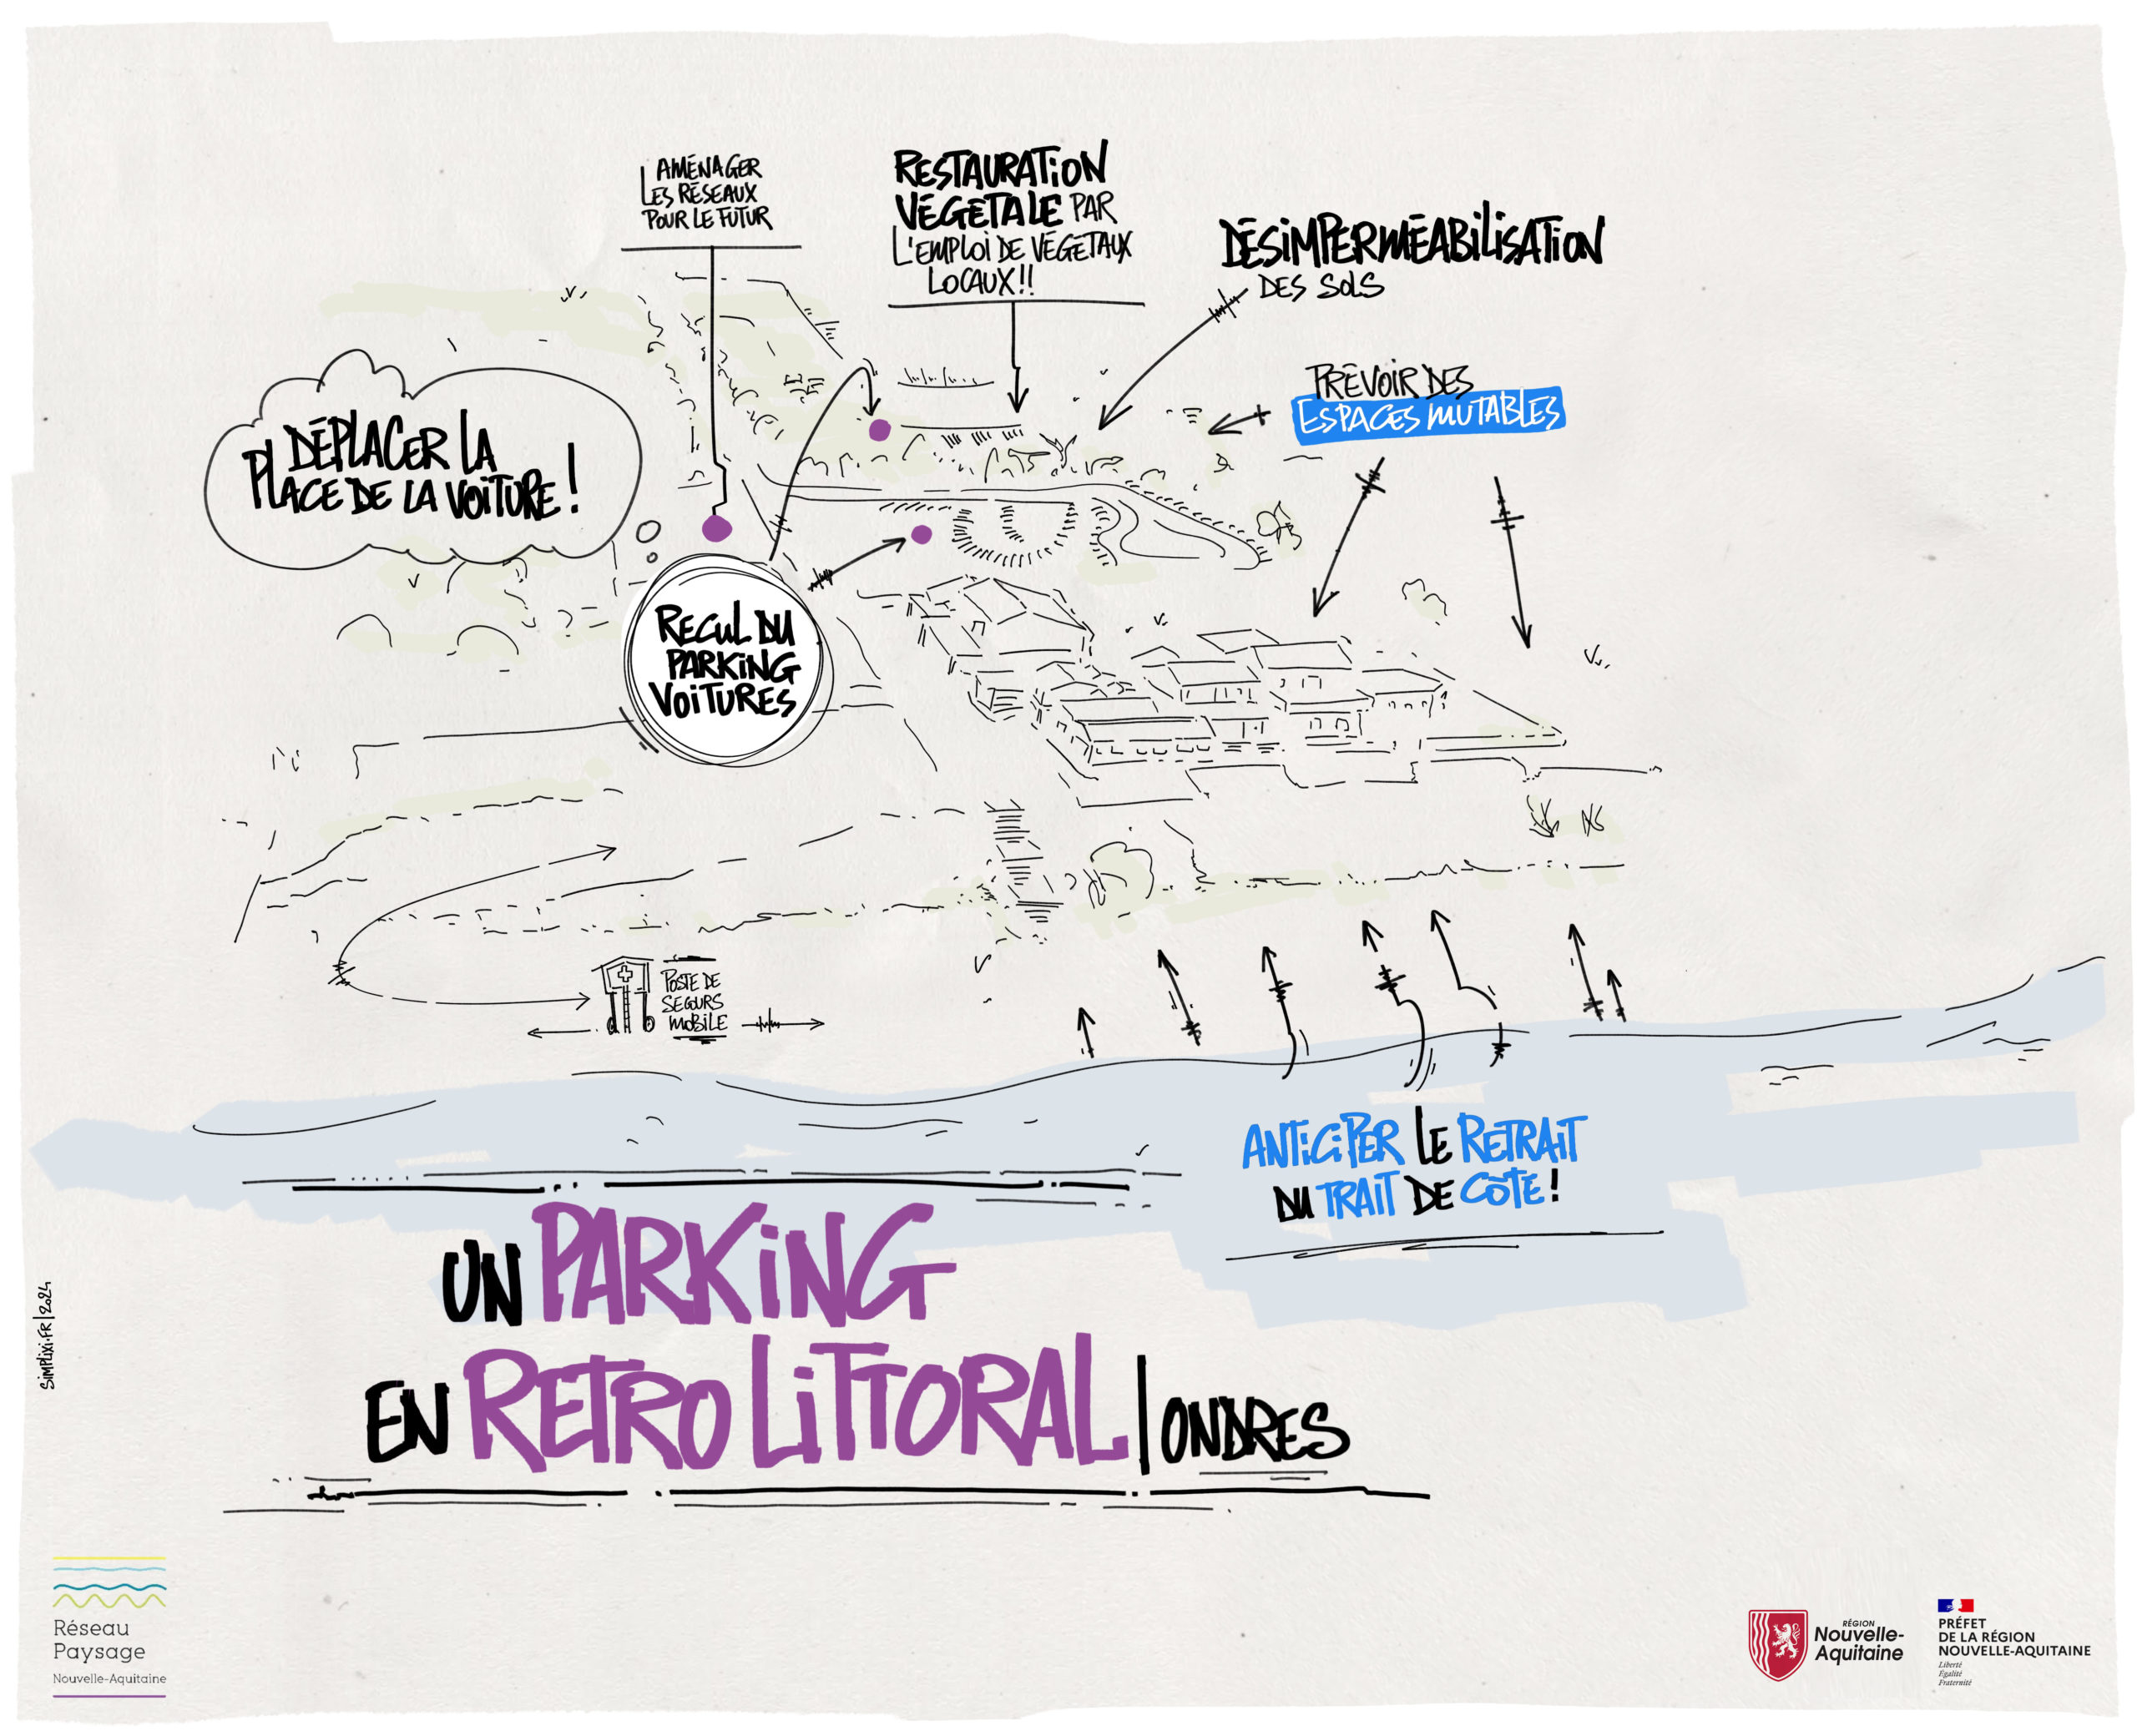 AMÉNAGER
LES RÉSEAUX
POUR LE FUTUR
RESTAURATION
VÉGÉTALE PAR
L'EMPLOI DE VÉGÉTAUX
LOCAUX!!
DÉSIMPERMÉABILISATION
DES SOLS
PRÉVOIR DES
ESPACES MUTABLES
DÉPLACER LA
PLACE DE LA VOITURE!
RECUL DU
PARKING
VOITURES
POSTE DE
SECOURS
MOBILE
ANTICIPER LE RETRAIT
DU TRAIT DE CÔTE!
UN PARKING
EN RETRO LITTORAL | ONDRES
SIMPLIXI.FR | 2024
Réseau
Paysage
Nouvelle-Aquitaine
RÉGION
Nouvelle-
Aquitaine
PRÉFET
DE LA RÉGION
NOUVELLE-AQUITAINE
Liberté
Égalité
Fraternité